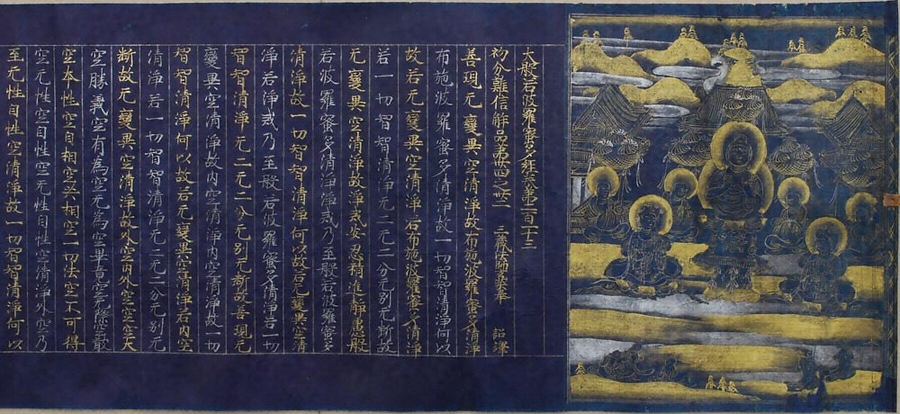 大般若波羅蜜多經卷第二百一十三
初分難信解品第卅四之卅二　三藏法師玄奘奉　詔譯
善現无變異空清淨故布施波羅蜜多清淨
布施波羅蜜多清淨故一切智智清淨何以
故若无變異空清淨若布施波羅蜜多清淨
若一切智智清淨无二无二分无別无斷故
无變異空清淨故淨戒安忍精進靜慮般
若波羅蜜多清淨淨戒乃至般若波羅蜜多
清淨故一切智智清淨何以故若无變異空清
淨若淨戒乃至般若波羅蜜多清淨若一切
智智清淨无二无二分无別无斷故善現无
變異空清淨故內空清淨內空清淨故一切
智智清淨何以故若无變異空清淨若內空
清淨若一切智智清淨无二无二分无別无
斷故无變異空清淨故外空內外空空空大
空勝義空有為空无為空畢竟空无際空散
空本性空自相空共相空一切法空不可得
空无性空自性空无性自性空清淨外空乃
至无性自性空清淨故一切智智清淨何以